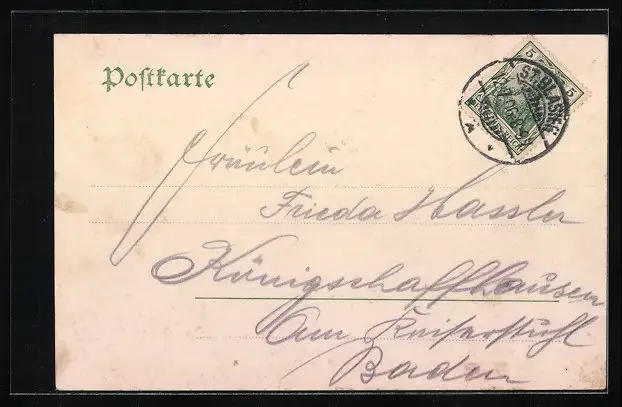 Postkarte
5 5
ST. BLASIEN
Fräulein
Frieda Hassler
Königschaffhausen
Am Kaiserstuhl
Baden